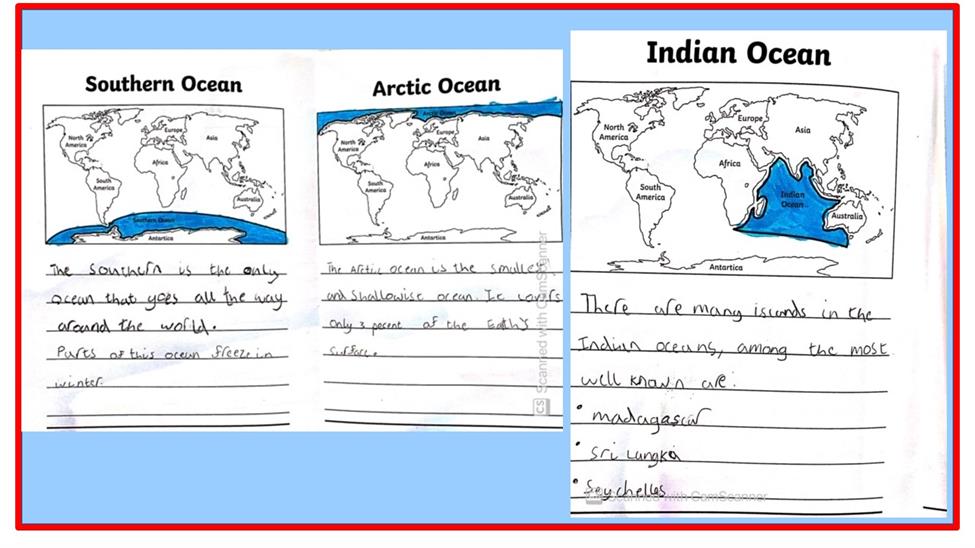 Southern Ocean
North
America
Europe
Asia
Africa
South
America
Australia
Southern Ocean
Antartica
The Southern is the only
ocean that goes all the way
around the world.
Parts of this ocean freeze in
winter.
Arctic Ocean
Arctic Ocean
North
America
Europe
Asia
Africa
South
America
Australia
Antartica
The Arctic ocean is the smalles
and shallowise ocean. It covers
only 3 pecent of the Earth's
surface.
CS Scanned with CamScanner
Indian Ocean
North
America
Europe
Asia
Africa
South
America
Indian
Ocean
Australia
Antartica
There are many islands in the
Indian oceans, among the most
well known are:
• madagascar
• Sri Lungka
• Seychelles
CS Scanned with CamScanner